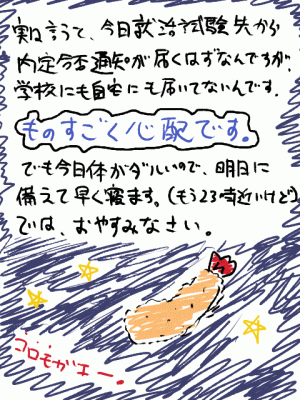 実は言うて、今日就活試験先から
内定合否通知が届くはずなんですが、
学校にも自宅にも届いてないんです。
ものすごく心配です。
でも今日体がダルいので、明日に
備えて早く寝ます。(もう23時近いけど)
では、おやすみなさい。
コロモがエー。